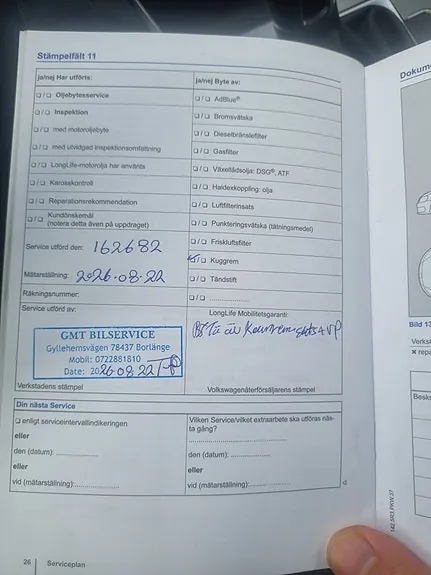 Stämpelfält 11
ja/nej Har utförts:
❑ / ❑ Oljebytesservice
❑ / ❑ Inspektion
❑ / ❑ med motoroljebyte
❑ / ❑ med utvidgad inspektionsomfattning
❑ / ❑ LongLife-motorolja har använts
❑ / ❑ Karosskontroll
❑ / ❑ Reparationsrekommendation
❑ / ❑ Kundönskemål
(notera detta även på uppdraget)
Service utförd den: 162682
Mätarställning: 2026.08.22
Räkningsnummer:
Service utförd av:
GMT BILSERVICE
Gyllehemsvägen 78437 Borlänge
Mobil: 0722881810
Date: 2026.08.22
Verkstadens stämpel
ja/nej Byte av:
❑ / ❑ AdBlue®
❑ / ❑ Bromsvätska
❑ / ❑ Dieselbränslefilter
❑ / ❑ Gasfilter
❑ / ❑ Växellådsolja: DSG®, ATF
❑ / ❑ Haldexkoppling: olja
❑ / ❑ Luftfilterinsats
❑ / ❑ Punkteringsvätska (tätningsmedel)
❑ / ❑ Friskluftsfilter
/ ❑ Kuggrem
❑ / ❑ Tändstift
❑ / ❑ ....................
LongLife Mobilitetsgaranti:
VP
Volkswagenåterförsäljarens stämpel
Din nästa Service
❑ enligt serviceintervallindikeringen
eller
den (datum): ....................
eller
vid (mätarställning):....................
Vilken Service/vilket extraarbete ska utföras näs-
ta gång?
....................
eller
den (datum): ....................
eller
vid (mätarställning):....................
26 Serviceplan
Dokum
Bild 13
Verkst
× repa
Besk
142.5R3.PKW.37